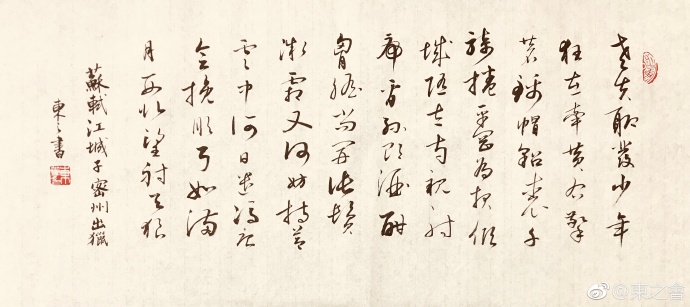 老夫聊發少年
狂左牽黃右擎
蒼錦帽貂裘千
騎捲平岡為報傾
城隨太守親射
虎看孫郎酒酣
胸膽尚開張鬢
微霜又何妨持節
雲中何日遣馮唐
會挽雕弓如滿
月西北望射天狼
蘇軾江城子密州出獵
東之書
@東之書